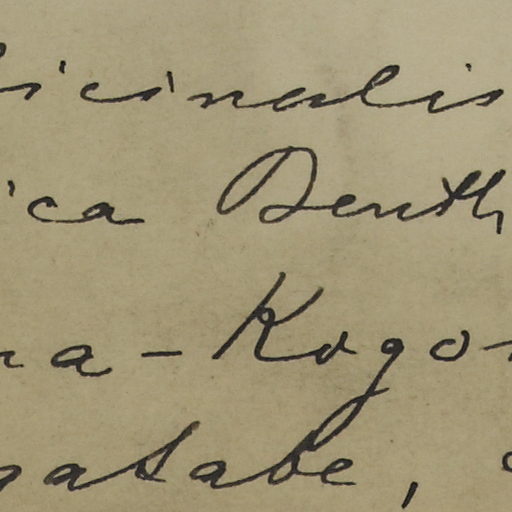 icinalis
ica Benth
na-Kogo
gasabe,